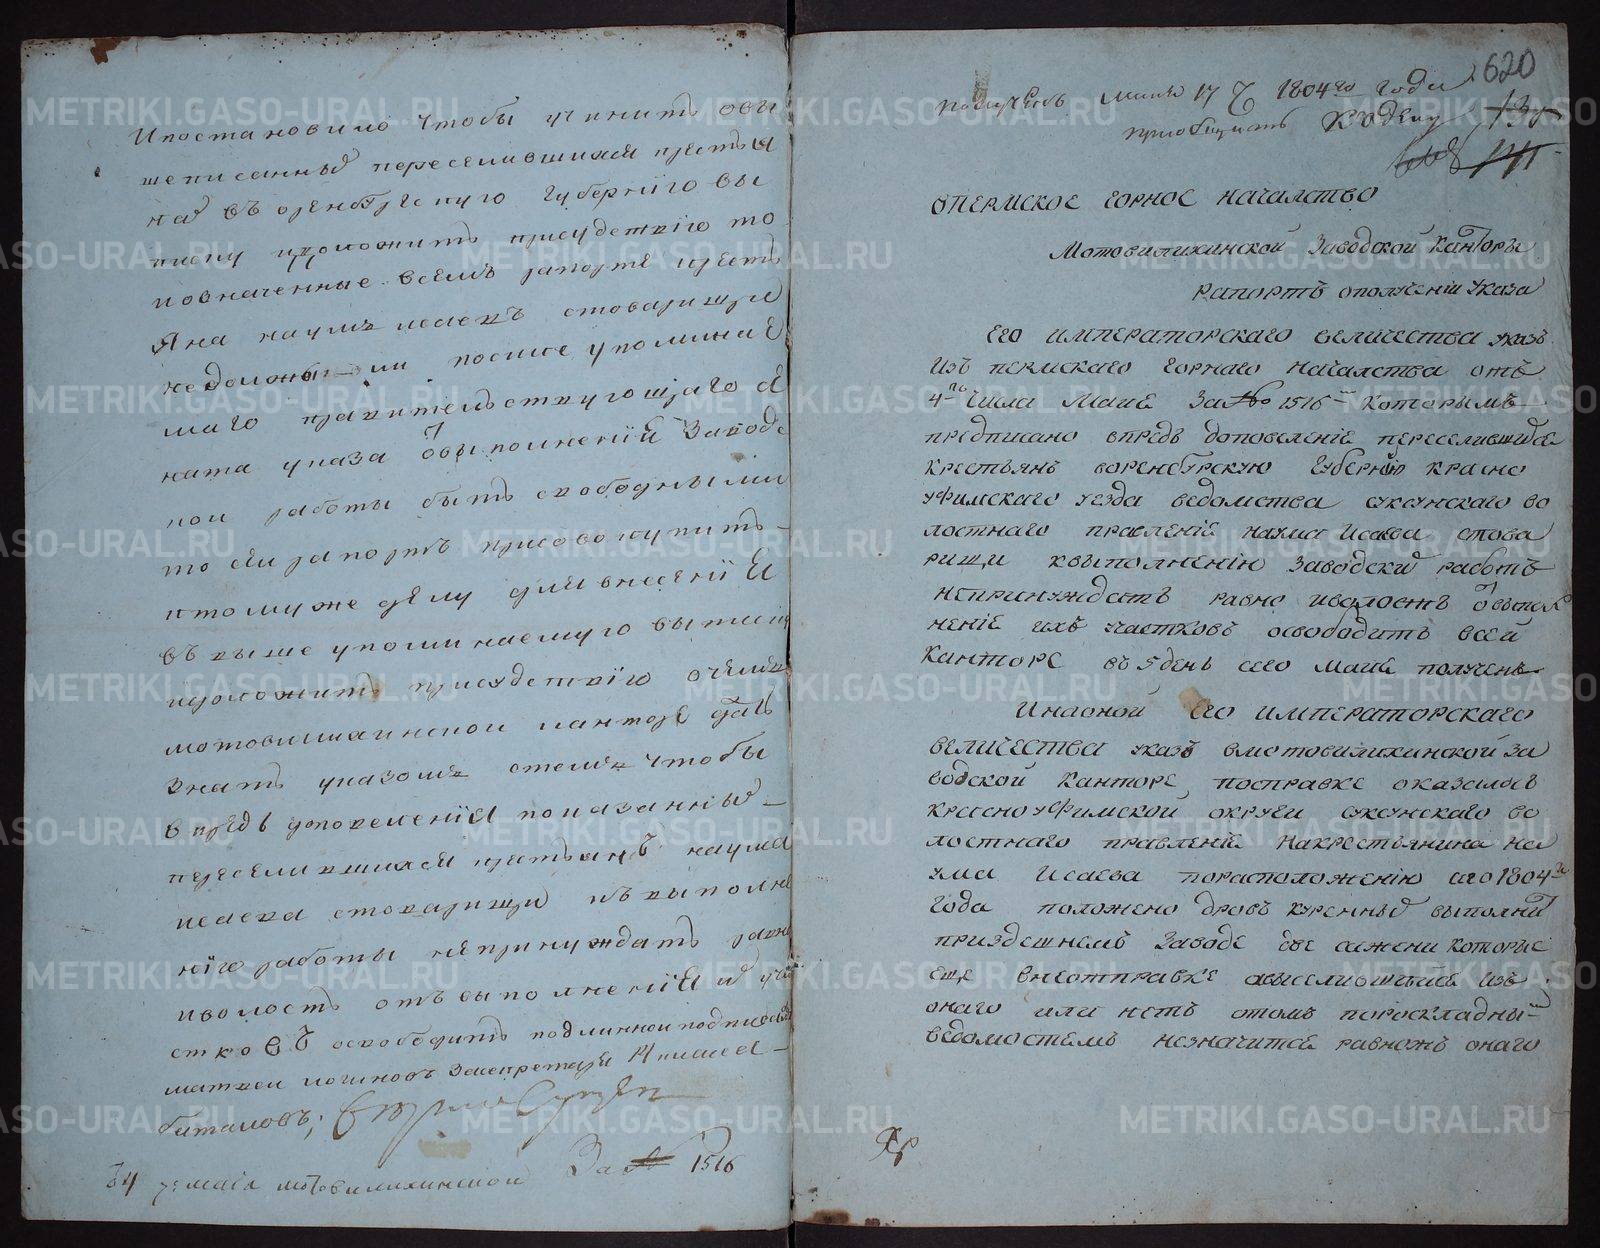 Ипостановило чтобы учинить овы
шеписанных переселившихся крестья
нах въ оренбургскую губернiю вы
писку идоложить присудствiю то
иозначенные всемъ рапорте крест
Яна наумъ исаевъ стоварищи
недолжны ли посиле упоминае
маго правительствующаго Се
ната указа овыполненiи Заводс
кои работы быть свободными
то сеи рапортъ присовокупить
ктомуже делу для внесенiя
въ выше упоминаемую выписку
идоложить присудствiю очемъ
мотовилихинскои канторе дать
Знать указомъ стемъ чтобы
впредь доповеленiя показанных
переселившихся крестьянъ наума
исаева стоварищи къ выполне
нiю работы непринуждать равно
иволость отъ выполненiя их уча
стковъ освободить подлинной подписали
матвеи логиновъ Засекретаря Николаи
баталовъ;
4 мая мотовилихинскои За № 1516
620
получень маия 17 1804го года
приобщить Кделу
ВПЕРМСКОЕ ГОРНОЕ НАЧАЛСТВО
Мотовилихинской Заводской Канторы
рапортъ ополученiи указа
Его ИМПЕРАТОРСКАГО ВЕЛИЧЕСТВА указъ
изъ пермскаго горнаго Началства отъ
4го числа Маие За№ 1516 Которымъ
предписано впредь доповеленiе переселившихся
крестьянъ воренбургскую Губернию красно
уфимскаго уезда ведомства суксунскаго во
лостнаго правленiе наума Исаева стова
рищи квыполненiю заводских работъ
непринуждать равно иволость овыпол
ненiе ихъ участковъ освободить всей
Канторе въ 5 день сего Маие полученъ
Инаоной Его ИМПЕРАТОРСКАГО
ВЕЛИЧЕСТВА указъ вмотовилихинской за
водской Канторе посправке оказалось
Красноуфимской округи суксунскаго во
лостнаго правленiе накрестьянина На
ума Исаева порасположенiю сего 1804го
Года положено дровъ куренных выполнит
приздешнемъ Заводе две сажени которые
еще внеотправке авыселившиесь изъ
онаго или нетъ отомъ пораскладным
ведомостемъ незначитсе равножъ онаго